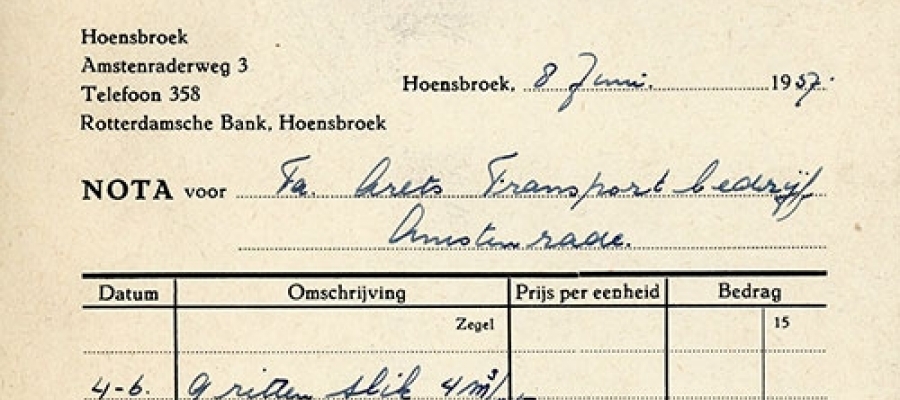 Hoensbroek
Amstenraderweg 3
Telefoon 358
Rotterdamsche Bank, Hoensbroek
Hoensbroek, 8 Juni. 1957.
NOTA voor Fa. Arets Transportbedrijf
Amstenrade.
Datum Omschrijving Prijs per eenheid Bedrag
Zegel 15
4-6. 9 ritten slik 4 m³